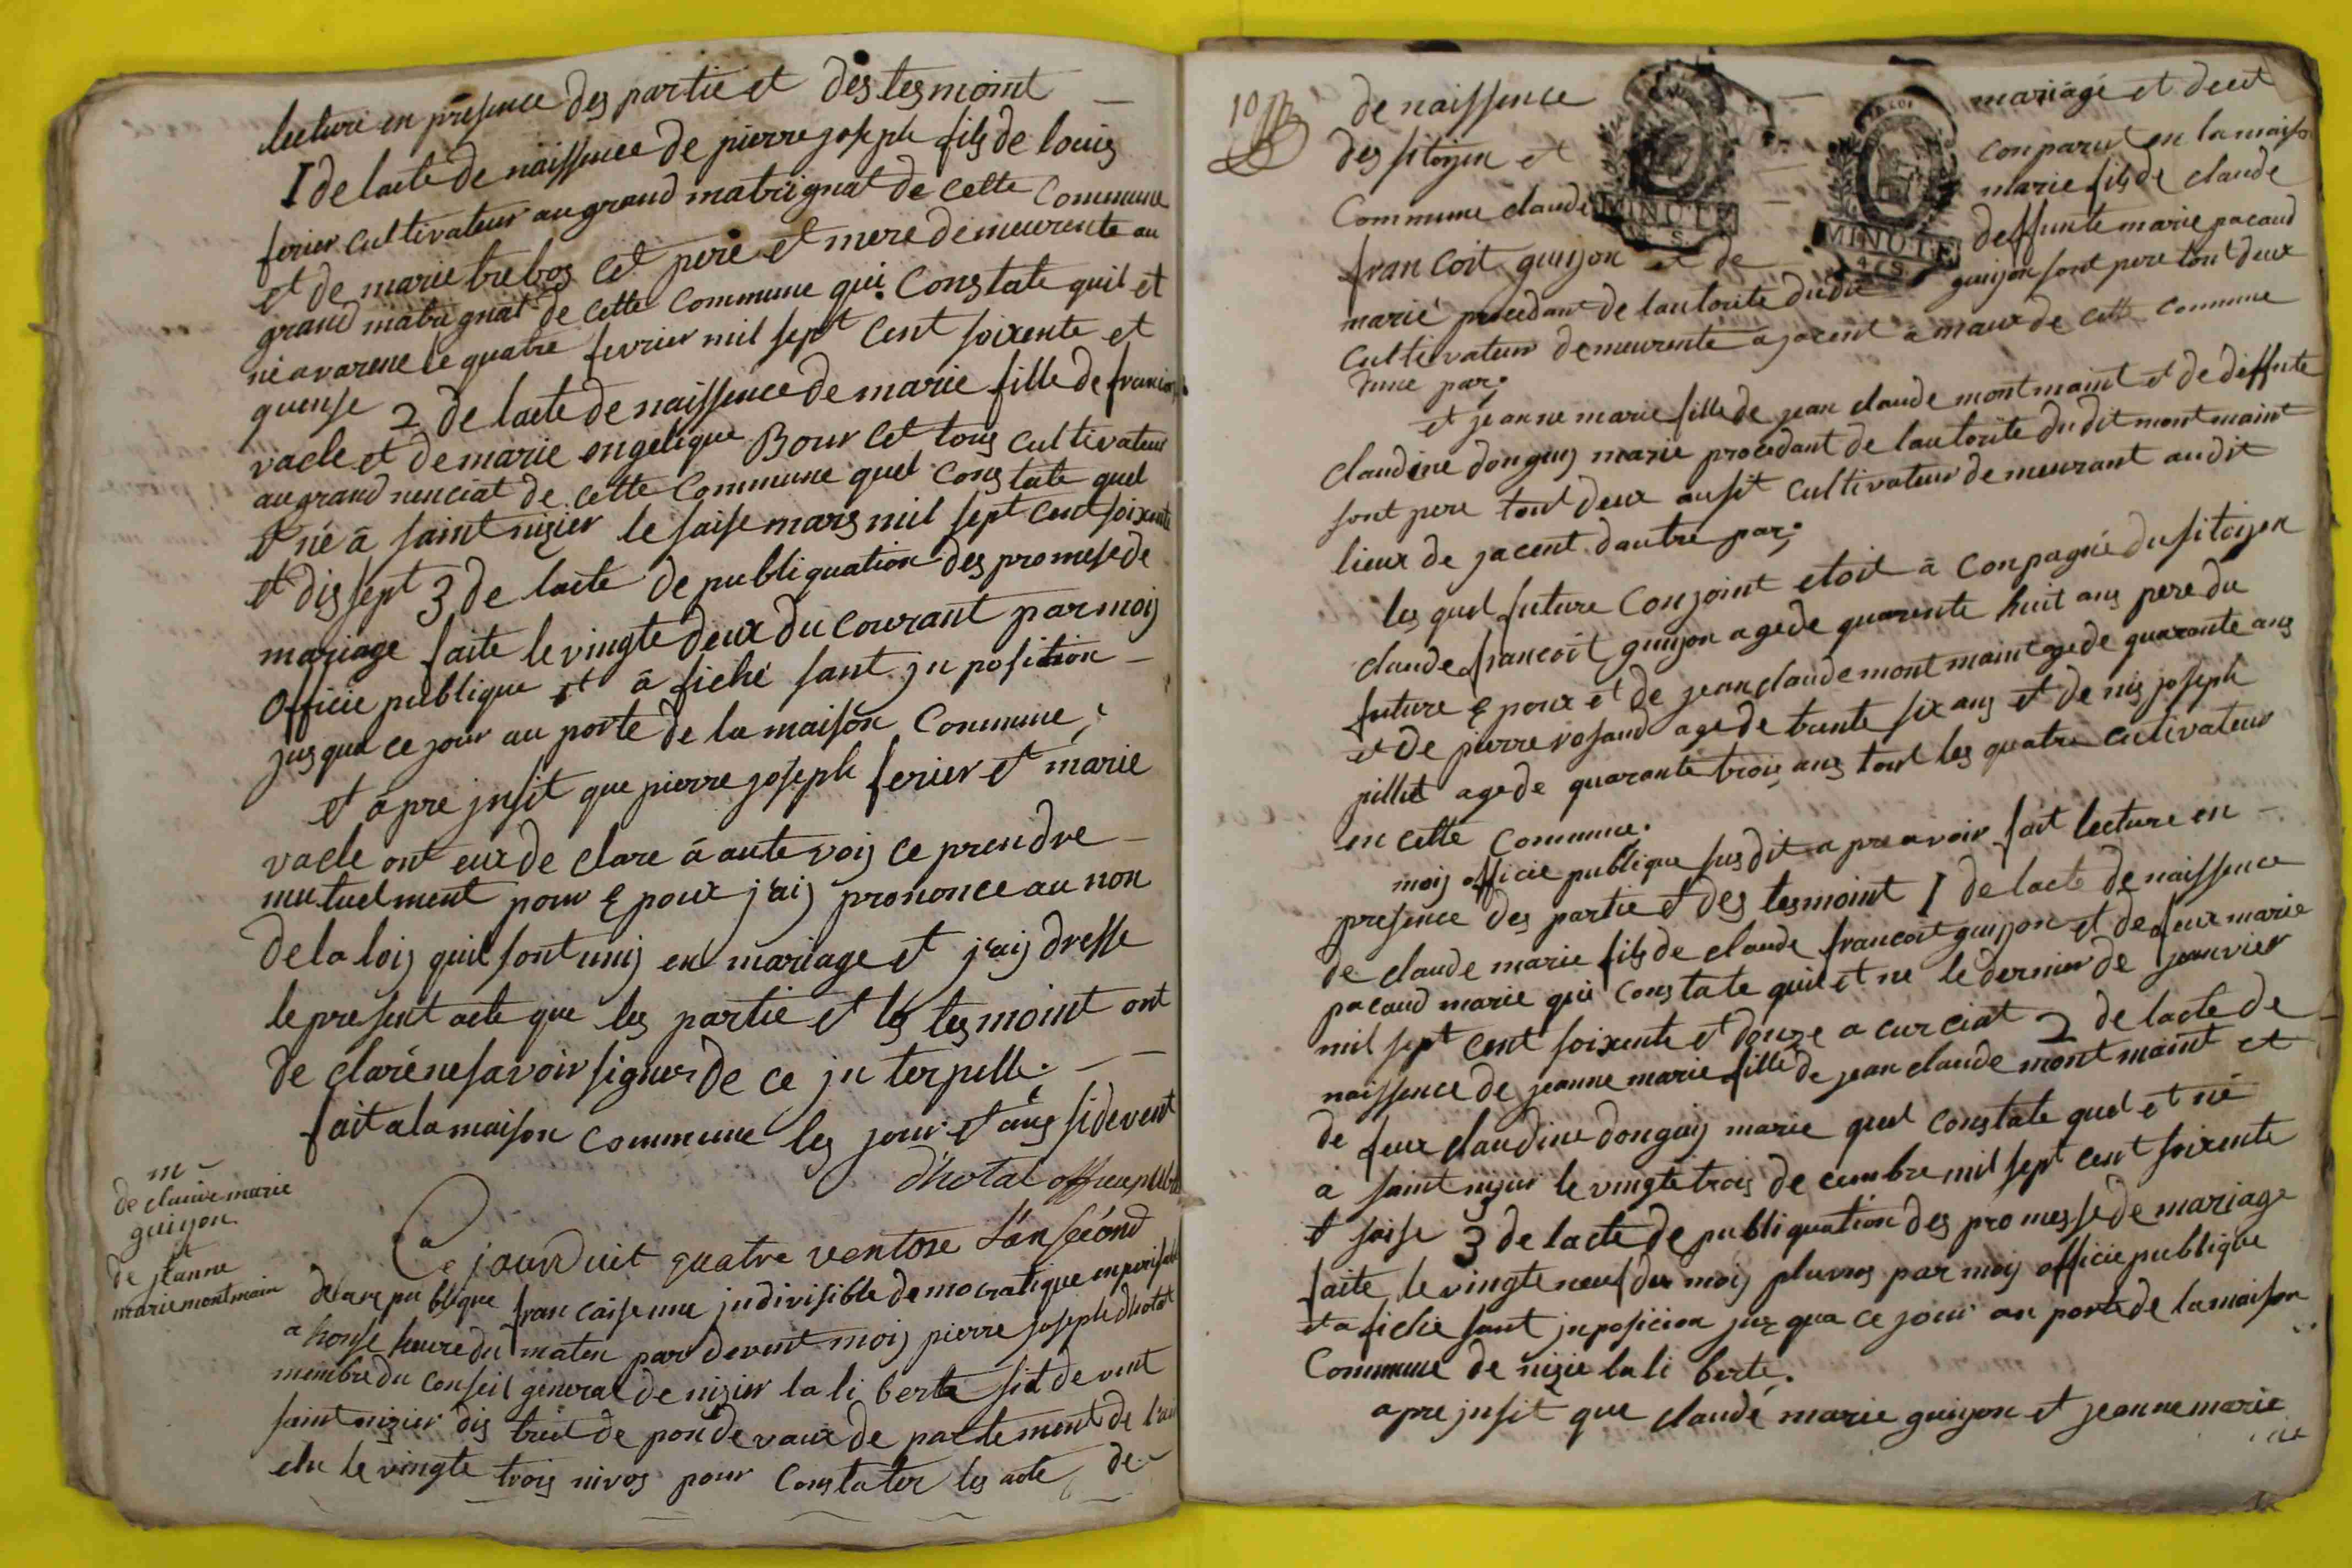 lecture en presence des partie et des tesmoint
1 de lacte de naissence de pierre joseph fils de louis
ferier cultivateur au grand matrignat de cette Commune
et de marie trebos cet pere et mere demeurente au
grand matrignat de cette commune qui Constate quil et
né a varene le quatre fevrier mil sept Cent soixente et
quense 2 de lacte de naissence de marie fille de francois
vacle et de marie engelique Bour cet tous cultivateur
au grand nenciat de cette Commune quel Constate quel
et né â saint nizier le saise mars mil sept cent soixente
et dis sept 3 de lacte de publiquation des promese de
mariage faite le vingte deux du courant par moij
officie publique et â fiché sant jn position
jus qua ce jour au porte de la maison Commune ;
et âpre jnsit que pierre joseph ferier et marie
vacle ont eux de clare â aute vois ce prendre
mutuelment pour Epoux j'aij prononce au non
de la loij quil sont unij en mariage et j'aij dresse
le present acte que les partie et les tesmoint ont
de claré ne savoir signer de ce jn terpelle.
fait a la maison commune les jour et ans sidevent
d'hotal officie publi
m
de claude marie
guiyon
et
de jeanne
marie montmain
Ce jourduit quatre ventose L'an second
de la re publique francaise une jndivisible democratique imperisable
a honse heure du maten par devent moij pierre joseph dhotal
membre du conseil general de nizier la li berte sit de vent
saint nizier dis trict de pon de vaux de partement de l'ain
elu le vingte trois nivos pour Constater les acte de
10
de naissence mariâge et decet
des sitoyen et conparut en la maison
Commune claude marie fils de claude
francoit guiyon et de deffunte marie pacaud
marié procedant de lautorite dudit guiyon sont pere tout deux
cultivateur demeurente a jacent â maux de cette commune
dune par;
et jeanne marie fille de jean claude montmaint et de deffunte
claudine donguij marie procedant de lautorite du dit montmaint
sont pere tout deux ausit cultivateur de meurant audit
lieux de jacent dautre par;
les quel future Conjoint etoit â Conpagnie du sitoyen
claude francoit guiyon age de quarente huit ans pere du
future Epoux et de jean claude mont maint age de quarante ans
et de pierre vosaud age de trante six ans et de nis joseph
pillet age de quarante trois ans tout les quatre cultivateur
en cette commune.
moij officie publique susdit a pre avoir fait lecture en
presence des partie et des tesmoint 1 de lacte de naissence
de claude marie fils de claude francoit guiyon et de feux marie
pacaud marie qui constate quil et né le dernier de janvier
mil sept cent soixente et donze a curciat 2 de lacte de
naissence de jeanne marie fille de jean claude mont maint et
de feux claudine donguij marie quel constate quel et né
a saint nizier le vingte trois de cembre mil sept cent soixente
et saise 3 de lacte de publiquation des promesse de mariage
faite le vingte neuf du mois pluvios par moij officie publique
et a fiché sant jnposicion jusqua ce jour au porte de la maison
Commune de nizie la li berte.
apre jnsit que claude marie guiyon et jeanne marie
LA LOI
MINUTE
MINUTE
4. S.